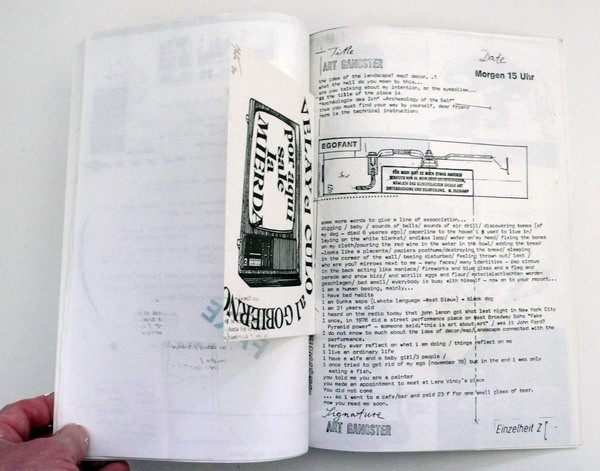 por aqui
sale
la
MIERDA
CULO al GOBIERNO
Title
ART GANGSTER
Date
Morgen 15 Uhr
the idea of the landscape? map? decor, .?
what the hell do you mean by this...
are you talking about my intention, or the symbolism...
as the title of the piece is
"Archéologie des Ich" -Archaeology of the Self"
thus you must find your way by yourself, dear friend
here is the technical instruction:
EGOFANT
some more words to give a line of association...
digging / baby / sounds of bells/ sounds of air drill/ discovering bones (of
my dog - died 6 years ago)/ paperline to the house i used to live in/
laying on the white blanket/ endless loop/ water on my head/ fixing the bones
on my cloth/pouring the red wine in the water in the bowl/ adding the bread
-looks like a placenta/ papiers posthume/destroying the bread/ sleeping
in the corner of the wall/ beeing disturbed/ feeling thrown out/ lost /
who are you? mirrows next to me - many faces/ many identities - pap circus
in the back acting like maniacs/ fireworks and blue glass and a flag and
parade and show bizz/ and acrylic eggs and flour/ nebelalschlachten werden
geschlagen/ bad smell/ everybody is busy with himself - now on to your report...
i am a human beeing, mainly...
i have bad habits
i am Sunka sapa (Lakota language -West Sioux) = black dog
i am 31 years old
i heard on the radio today that john lennon got shot last night in New York City
i once, in 1978 did a street performance piece on West Broadway Soho "Fake
Pyramid power" - someone said;"this is art about art" / was it John Ford?
i do not know much about the idea of decor/map/landscape connected with the
performance.
i herdly ever reflect on what i am doing / things reflect on me
i live an ordinary life
i have a wife and a baby girl/3 people /
i once tried to get rid of my ego (november 79) but in the end i was only
eating a fish.
you told me you are a painter
you made an appointment to meet at Lara Vincy's place
You did not come
... so i went to a cafe/bar and paid 23 f for one small glass of beer.
now you read me soon.
Signature
ART GANGSTER
Einzelheit Z